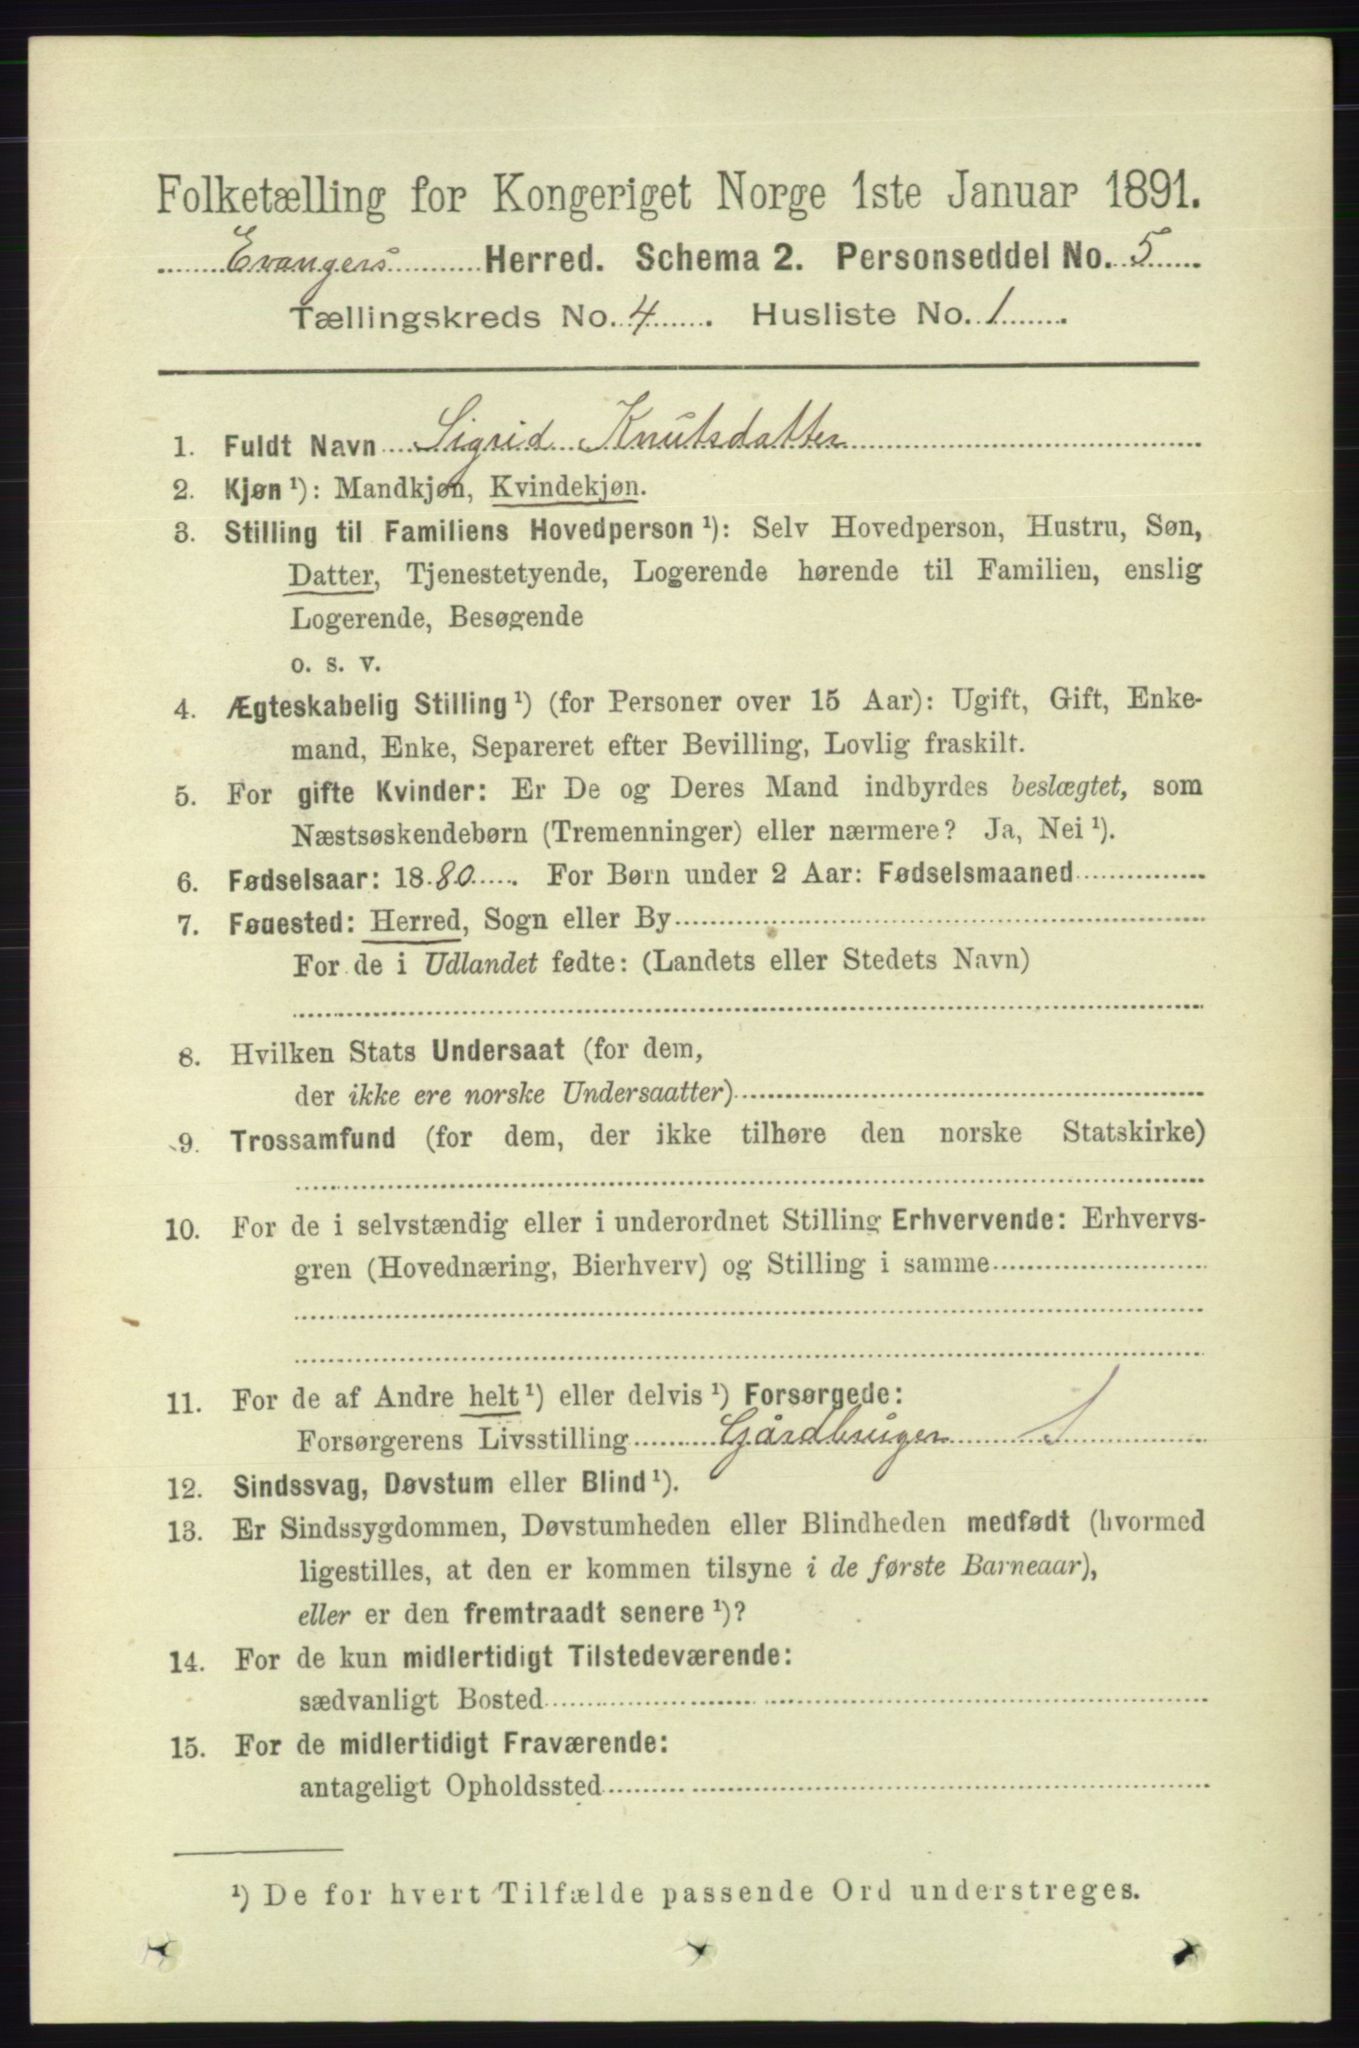 Folketælling for Kongeriget Norge 1ste Januar 1891.
Evangers Herred. Schema 2. Personseddel No. 5
Tællingskreds No. 4. Husliste No. 1.
1. Fuldt Navn Sigrid Knutsdatter
2. Kjøn ¹): Mandkjøn, Kvindekjøn.
3. Stilling til Familiens Hovedperson ¹): Selv Hovedperson, Hustru, Søn,
Datter, Tjenestetyende, Logerende hørende til Familien, enslig
Logerende, Besøgende
o. s. v.
4. Ægteskabelig Stilling ¹) (for Personer over 15 Aar): Ugift, Gift, Enke-
mand, Enke, Separeret efter Bevilling, Lovlig fraskilt.
5. For gifte Kvinder: Er De og Deres Mand indbyrdes beslægtet, som
Næstsøskendebørn (Tremenninger) eller nærmere? Ja, Nei ¹).
6. Fødselsaar: 1880. For Børn under 2 Aar: Fødselsmaaned
7. Føuested: Herred, Sogn eller By
For de i Udlandet fødte: (Landets eller Stedets Navn)
8. Hvilken Stats Undersaat (for dem,
der ikke ere norske Undersaatter)
9. Trossamfund (for dem, der ikke tilhøre den norske Statskirke)
10. For de i selvstændig eller i underordnet Stilling Erhvervende: Erhvervs-
gren (Hovednæring, Bierhverv) og Stilling i samme
11. For de af Andre helt ¹) eller delvis ¹) Forsørgede:
Forsørgerens Livsstilling Gårdbruger
12. Sindssvag, Døvstum eller Blind ¹).
13. Er Sindssygdommen, Døvstumheden eller Blindheden medfødt (hvormed
ligestilles, at den er kommen tilsyne i de første Barneaar),
eller er den fremtraadt senere ¹)?
14. For de kun midlertidigt Tilstedeværende:
sædvanligt Bosted
15. For de midlertidigt Fraværende:
antageligt Opholdssted
¹) De for hvert Tilfælde passende Ord understreges.